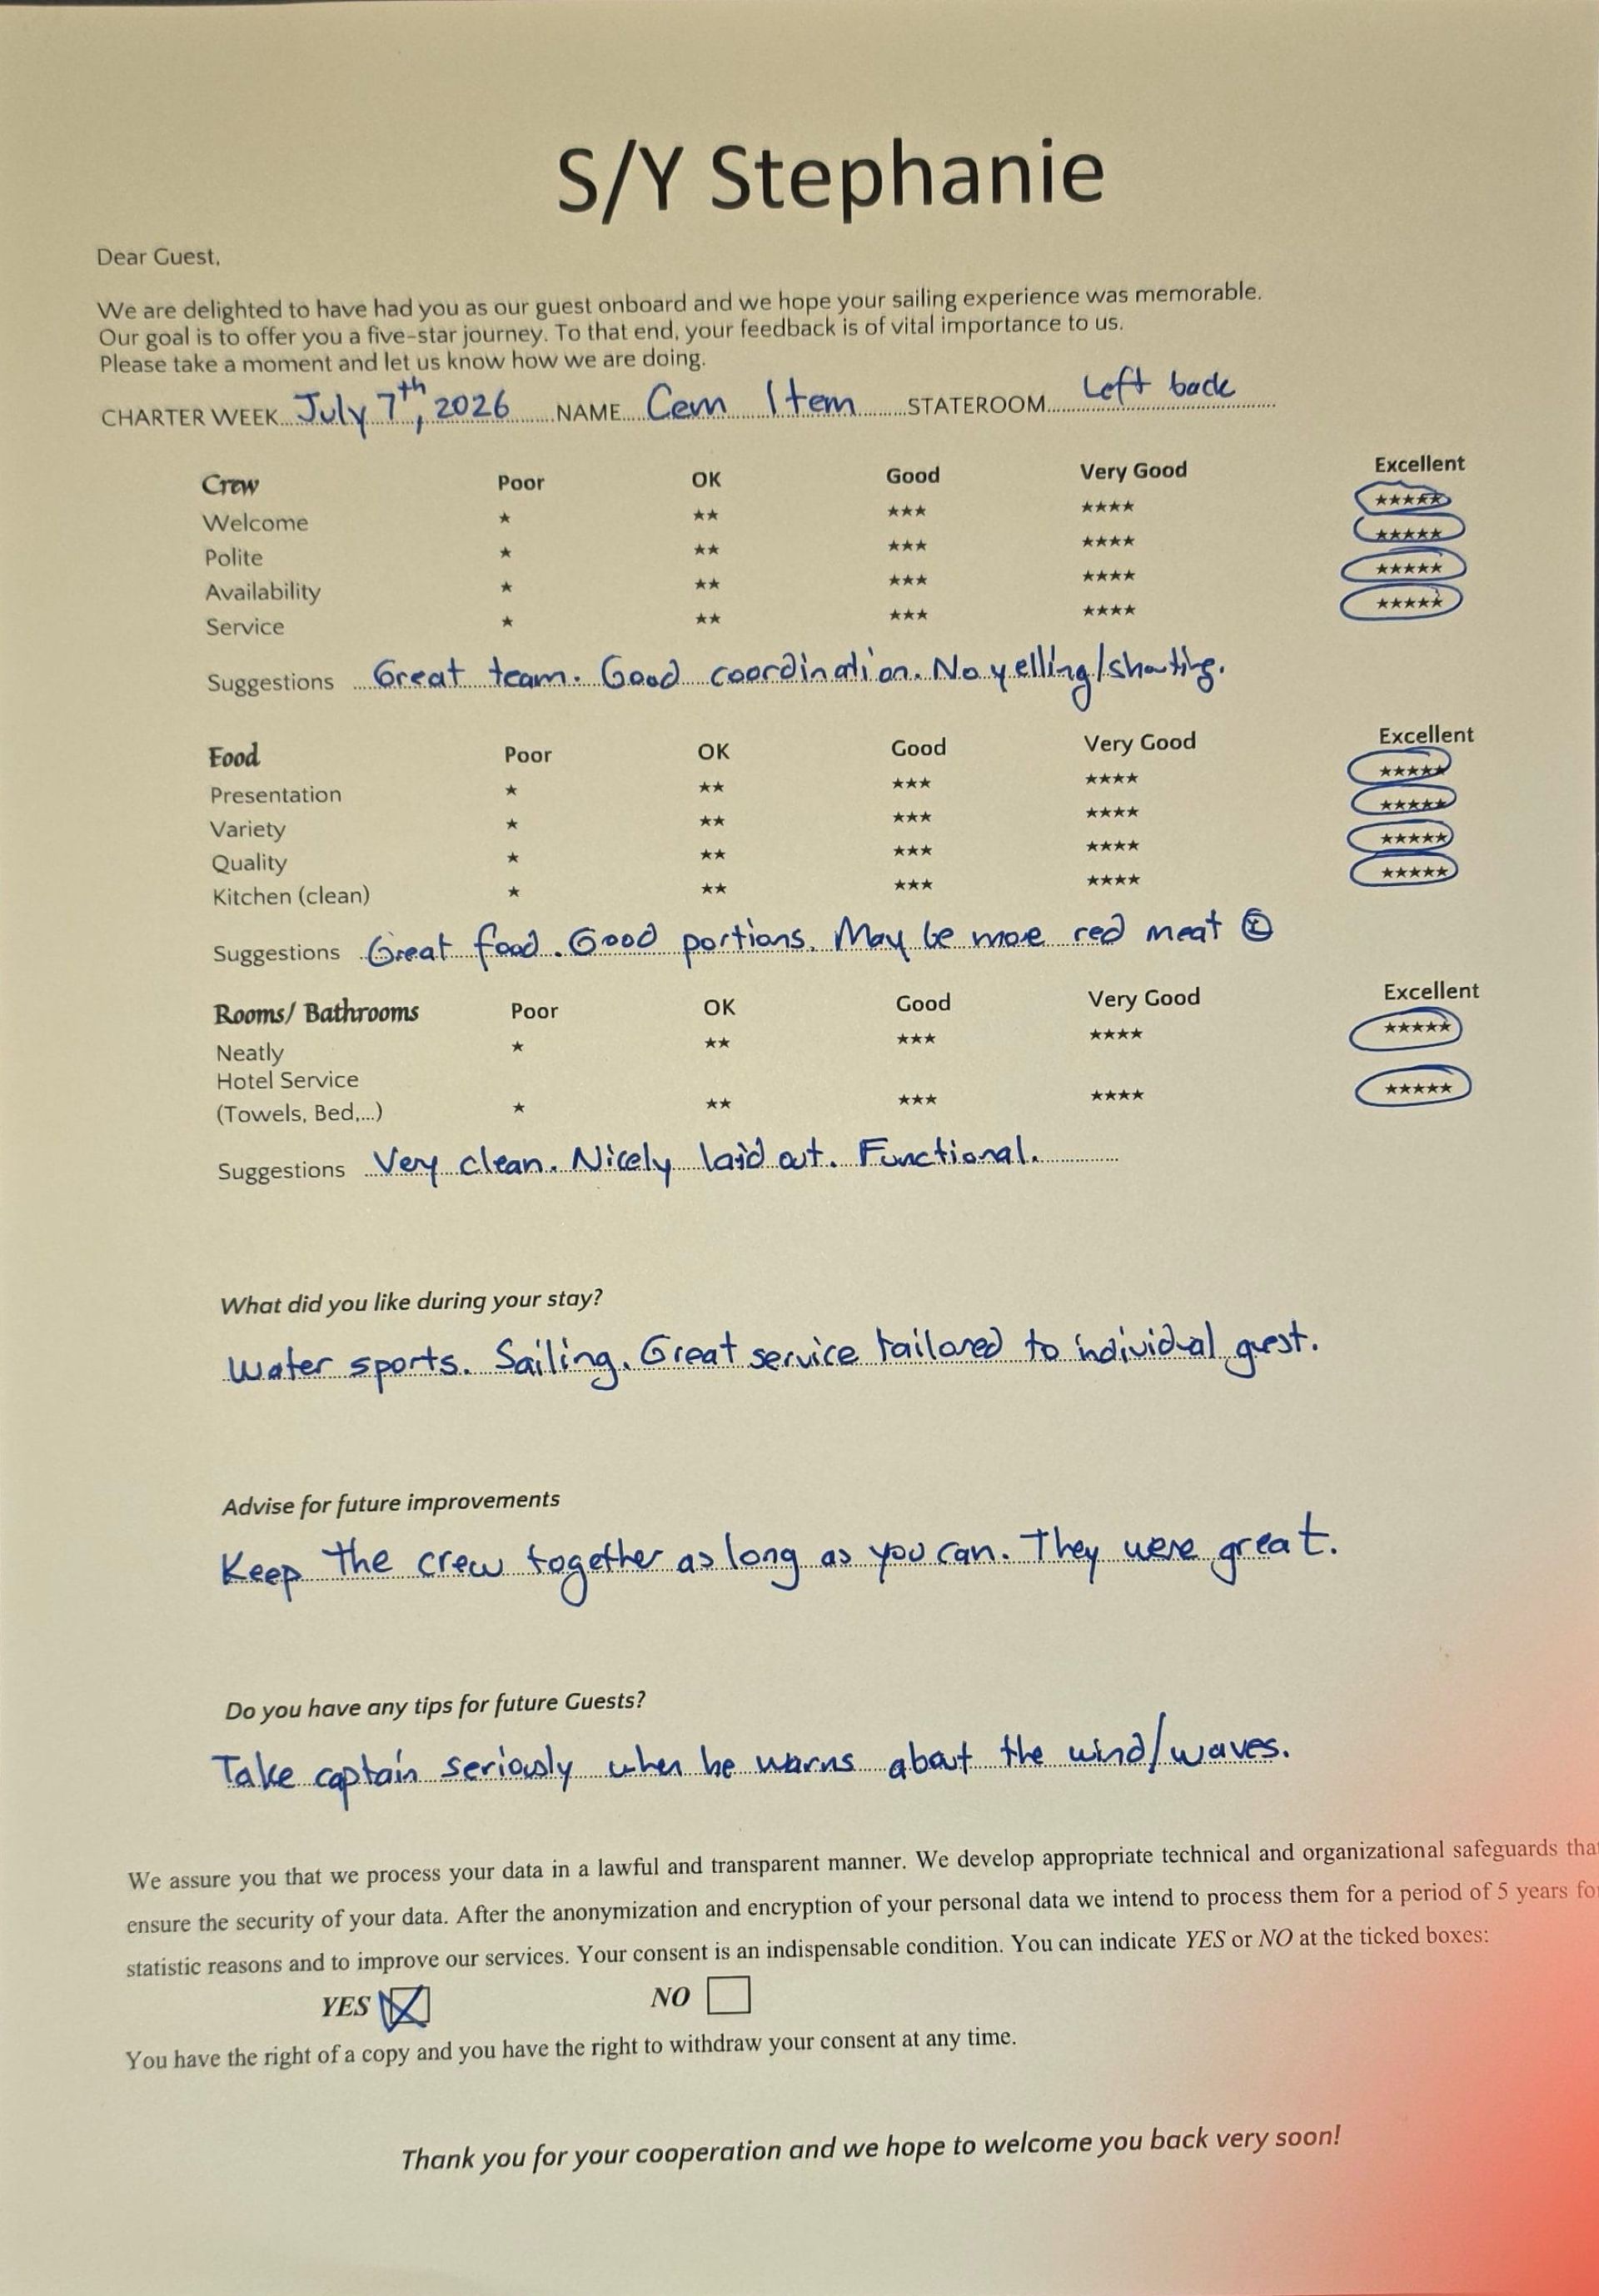 S/Y Stephanie
Dear Guest,
We are delighted to have had you as our guest onboard and we hope your sailing experience was memorable.
Our goal is to offer you a five-star journey. To that end, your feedback is of vital importance to us.
Please take a moment and let us know how we are doing.
CHARTER WEEK July 7th, 2026 NAME Cem Item STATEROOM Left back
Crew Poor OK Good Very Good Excellent
Welcome ★ ★★ ★★★ ★★★★ ★★★★★
Polite ★ ★★ ★★★ ★★★★ ★★★★★
Availability ★ ★★ ★★★ ★★★★ ★★★★★
Service ★ ★★ ★★★ ★★★★ ★★★★★
Suggestions Great team. Good coordination. No yelling/shouting.
Food Poor OK Good Very Good Excellent
Presentation ★ ★★ ★★★ ★★★★ ★★★★★
Variety ★ ★★ ★★★ ★★★★ ★★★★★
Quality ★ ★★ ★★★ ★★★★ ★★★★★
Kitchen (clean) ★ ★★ ★★★ ★★★★ ★★★★★
Suggestions Great food. Good portions. May be more red meat ☺
Rooms/ Bathrooms Poor OK Good Very Good Excellent
Neatly ★ ★★ ★★★ ★★★★ ★★★★★
Hotel Service
(Towels, Bed,...) ★ ★★ ★★★ ★★★★ ★★★★★
Suggestions Very clean. Nicely laid out. Functional.
What did you like during your stay?
Water sports. Sailing. Great service tailored to individual guest.
Advise for future improvements
Keep the crew together as long as you can. They were great.
Do you have any tips for future Guests?
Take captain seriously when he warns about the wind/waves.
We assure you that we process your data in a lawful and transparent manner. We develop appropriate technical and organizational safeguards that
ensure the security of your data. After the anonymization and encryption of your personal data we intend to process them for a period of 5 years for
statistic reasons and to improve our services. Your consent is an indispensable condition. You can indicate YES or NO at the ticked boxes:
YES ☒ NO ☐
You have the right of a copy and you have the right to withdraw your consent at any time.
Thank you for your cooperation and we hope to welcome you back very soon!